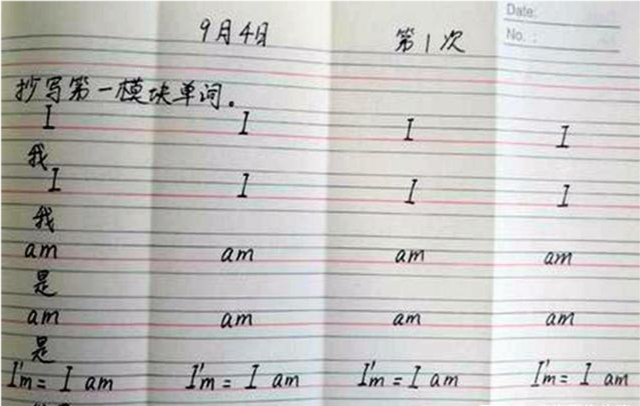 Date:
9月4日 第1次
No. :
抄写第一模块单词。
I I I I
我
I I I I
我
am am am am
是
am am am am
是
I'm = I am I'm = I am I'm = I am I'm = I am